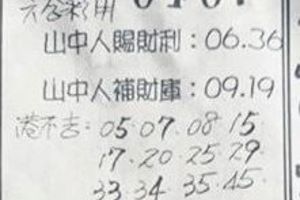 六合彩用
山中人賜財利：06.36
山中人補財庫：09.19
港不吉：05.07.08.15
17.20.25.29
33.34.35.45.